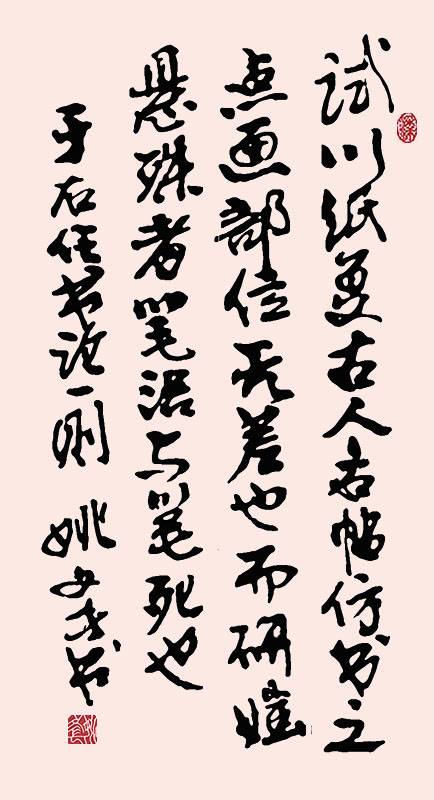 试以纸复古人名帖仿书之
点画部位无差也而研媸
悬殊者笔活与笔死也
于右任书论一则 姚文书